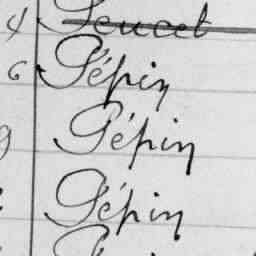 4 Poucet
6 Pépin
9 Pépin
Pépin